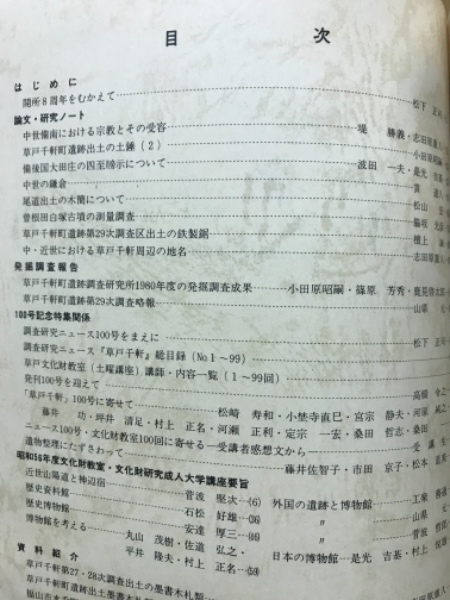 目 次
はじめに
開所8周年をむかえて……松下 正司
論文・研究ノート
中世備南における宗教とその受容……堤 勝義・志田原重人
草戸千軒町遺跡出土の土錘(2)……小田原昭嗣
備後国大田庄の四至牓示について……波田 一夫・是光 吉基
中世の鎌倉……貫 達人
尾道出土の木簡について……松山
曽根田白塚古墳の測量調査……脇坂 光彦
草戸千軒町遺跡第29次調査区出土の鉄製鋸……檀上
中・近世における草戸千軒周辺の地名……志田原
発掘調査報告
草戸千軒町遺跡調査研究所1980年度の発掘調査成果……小田原昭嗣・篠原 芳秀・鹿見啓太郎
草戸千軒町遺跡第29次調査略報……山県 元
100号記念特集関係
調査研究ニュース100号をまえに……松下 正司
調査研究ニュース『草戸千軒』総目録(No1〜99)
草戸文化財教室(土曜講座)講師・内容一覧(1〜99回)
発刊100号を迎えて……高橋 令之
「草戸千軒」100号に寄せて……松崎 寿和・小埜寺直巳・宮宗 静夫・河原 誠之
藤井 功・坪井 清足・村上 正名・河瀬 正利・定宗 一宏・桑田 哲志・桑田
ニュース100号・文化財教室100回に寄せる―受講者感想文から……受講生
遺物整理にたずさわって……藤井佐智子・市田 京子・松本
昭和56年度文化財教室・文化財研究成人大学講座要旨
近世山陽道と神辺宿……菅波 堅次…(6) 外国の遺跡と博物館……工楽 善通
歴史資料館……石松 好雄… 〃 ……山県 元
歴史博物館……安達 厚三… 〃 ……菅波 哲郎
博物館を考える……丸山 茂樹・佐道 弘之・ 日本の博物館…是光 吉基・村上
平井 隆夫・村上 正名…(59)
資料紹介
草戸千軒第27・28次調査出土の墨書木札類
草戸千軒町遺跡出土墨書木札
福山市本